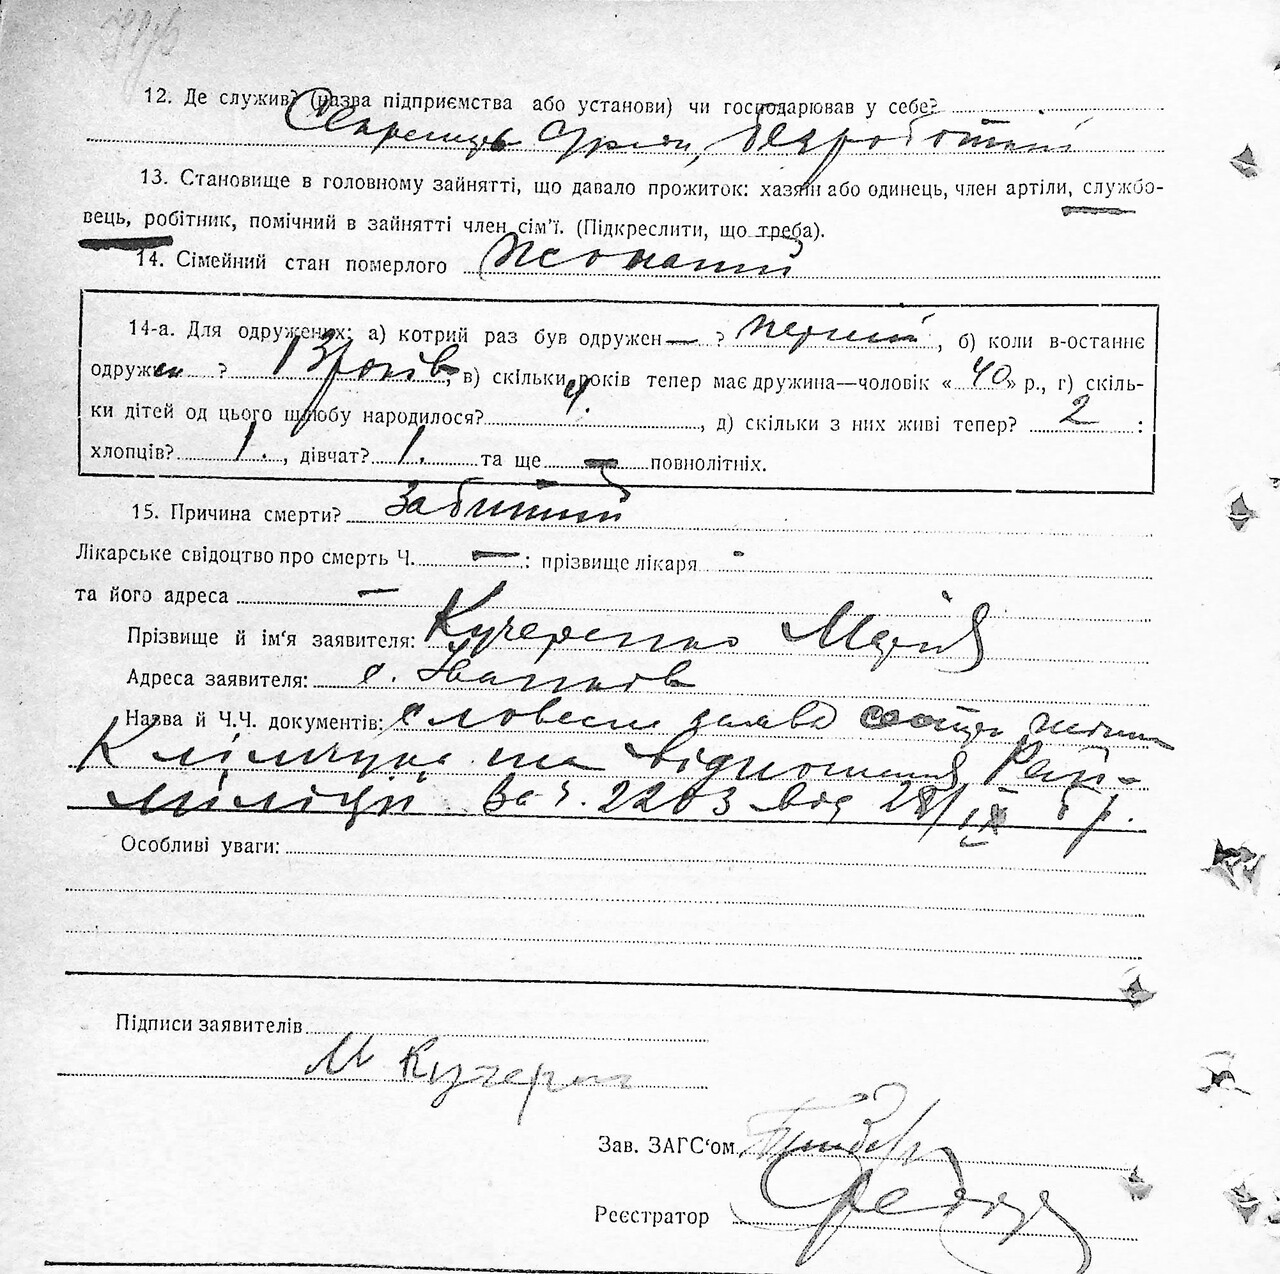 12. Де служив? (назва підприємства або установи) чи господарював у себе?
Секретарь безработний
13. Становище в головному зайнятті, що давало прожиток: хазяїн або одинець, член артіли, службо-
вець, робітник, помічний в зайнятті член сім'ї. (Підкреслити, що треба).
14. Сімейний стан померлого Жонатий
14-а. Для одружених: а) котрий раз був одружен— ? перший, б) коли в-останнє
одружен ? 13 років, в) скільки років тепер має дружина—чоловік «40» р., г) скіль-
ки дітей од цього шлюбу народилося? 4., д) скільки з них живі тепер? 2 :
хлопців? 1., дівчат? 1. та ще — повнолітніх.
15. Причина смерти? Забитий
Лікарське свідоцтво про смерть Ч. — : прізвище лікаря -
та його адреса —
Прізвище й ім'я заявителя: Кучеренко Марія
Адреса заявителя: с. Іванків
Назва й Ч.Ч. документів: словесна заява
та відношення Рай-
міліції за ч. 2203 від 28/IX
Особливі уваги:
Підписи заявителів
М Кучерен
Зав. ЗАГС'ом
Реєстратор